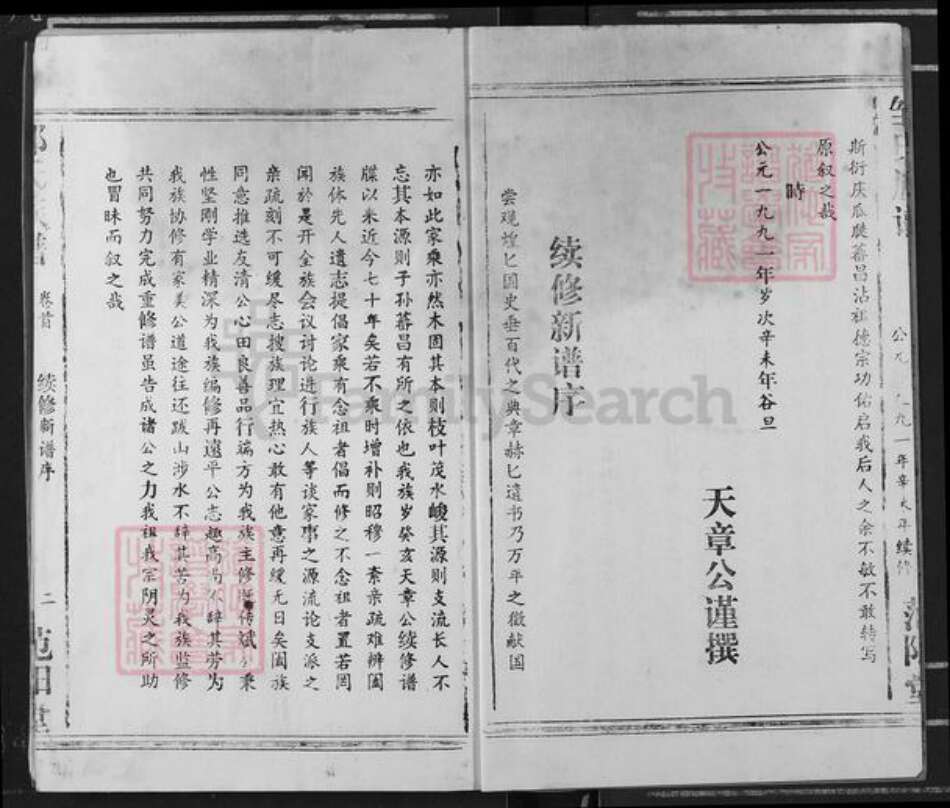 斯衍庆瓜瓞蕃昌沾祖德宗功佑启我后人之余不敏不敢特写
原叙之哉
時
公元一九九一年岁次辛未年谷旦
天章公谨撰
续修新谱序
尝观煌匕国史垂百代之典章赫匕遗书乃万年之徵献国
亦如此家乘亦然木固其本则枝叶茂水峻其源则支流长人不
忘其本源则子孙蕃昌有所之依也我族岁癸亥天章公续修谱
牒以来近今七十年矣若不乘时增补则昭穆一紊亲疏难辨阖
族体先人遗志提倡家乘有念祖者倡而修之不念祖者置若罔
闻於是开全族会议讨论进行族人等谈家事之源流论支派之
亲疏刻不可缓尽志搜族理宜热心敢有他意再缓无日矣阖族
同意推选友清公心田良善品行端方为我族主修 斌 秉
性坚刚学业精深为我族编修再远平公志趣高尚不辞其劳为
我族协修有家美公道途往还跋山涉水不辞其苦为我族监修
共同努力完成重修谱虽告成诸公之力我祖我宗阴灵之所助
也冒昧而叙之哉
卷首
续修新谱序
二
公元一九九一年辛未年续修
FamilySearch